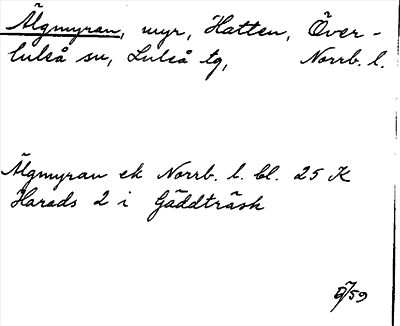 Älgmyran, myr, Hatten, Över-
luleå sn, Luleå tg, Norrb. l.
Älgmyran ek Norrb. l. bl. 25 K
Harads 2 i Gäddträsk